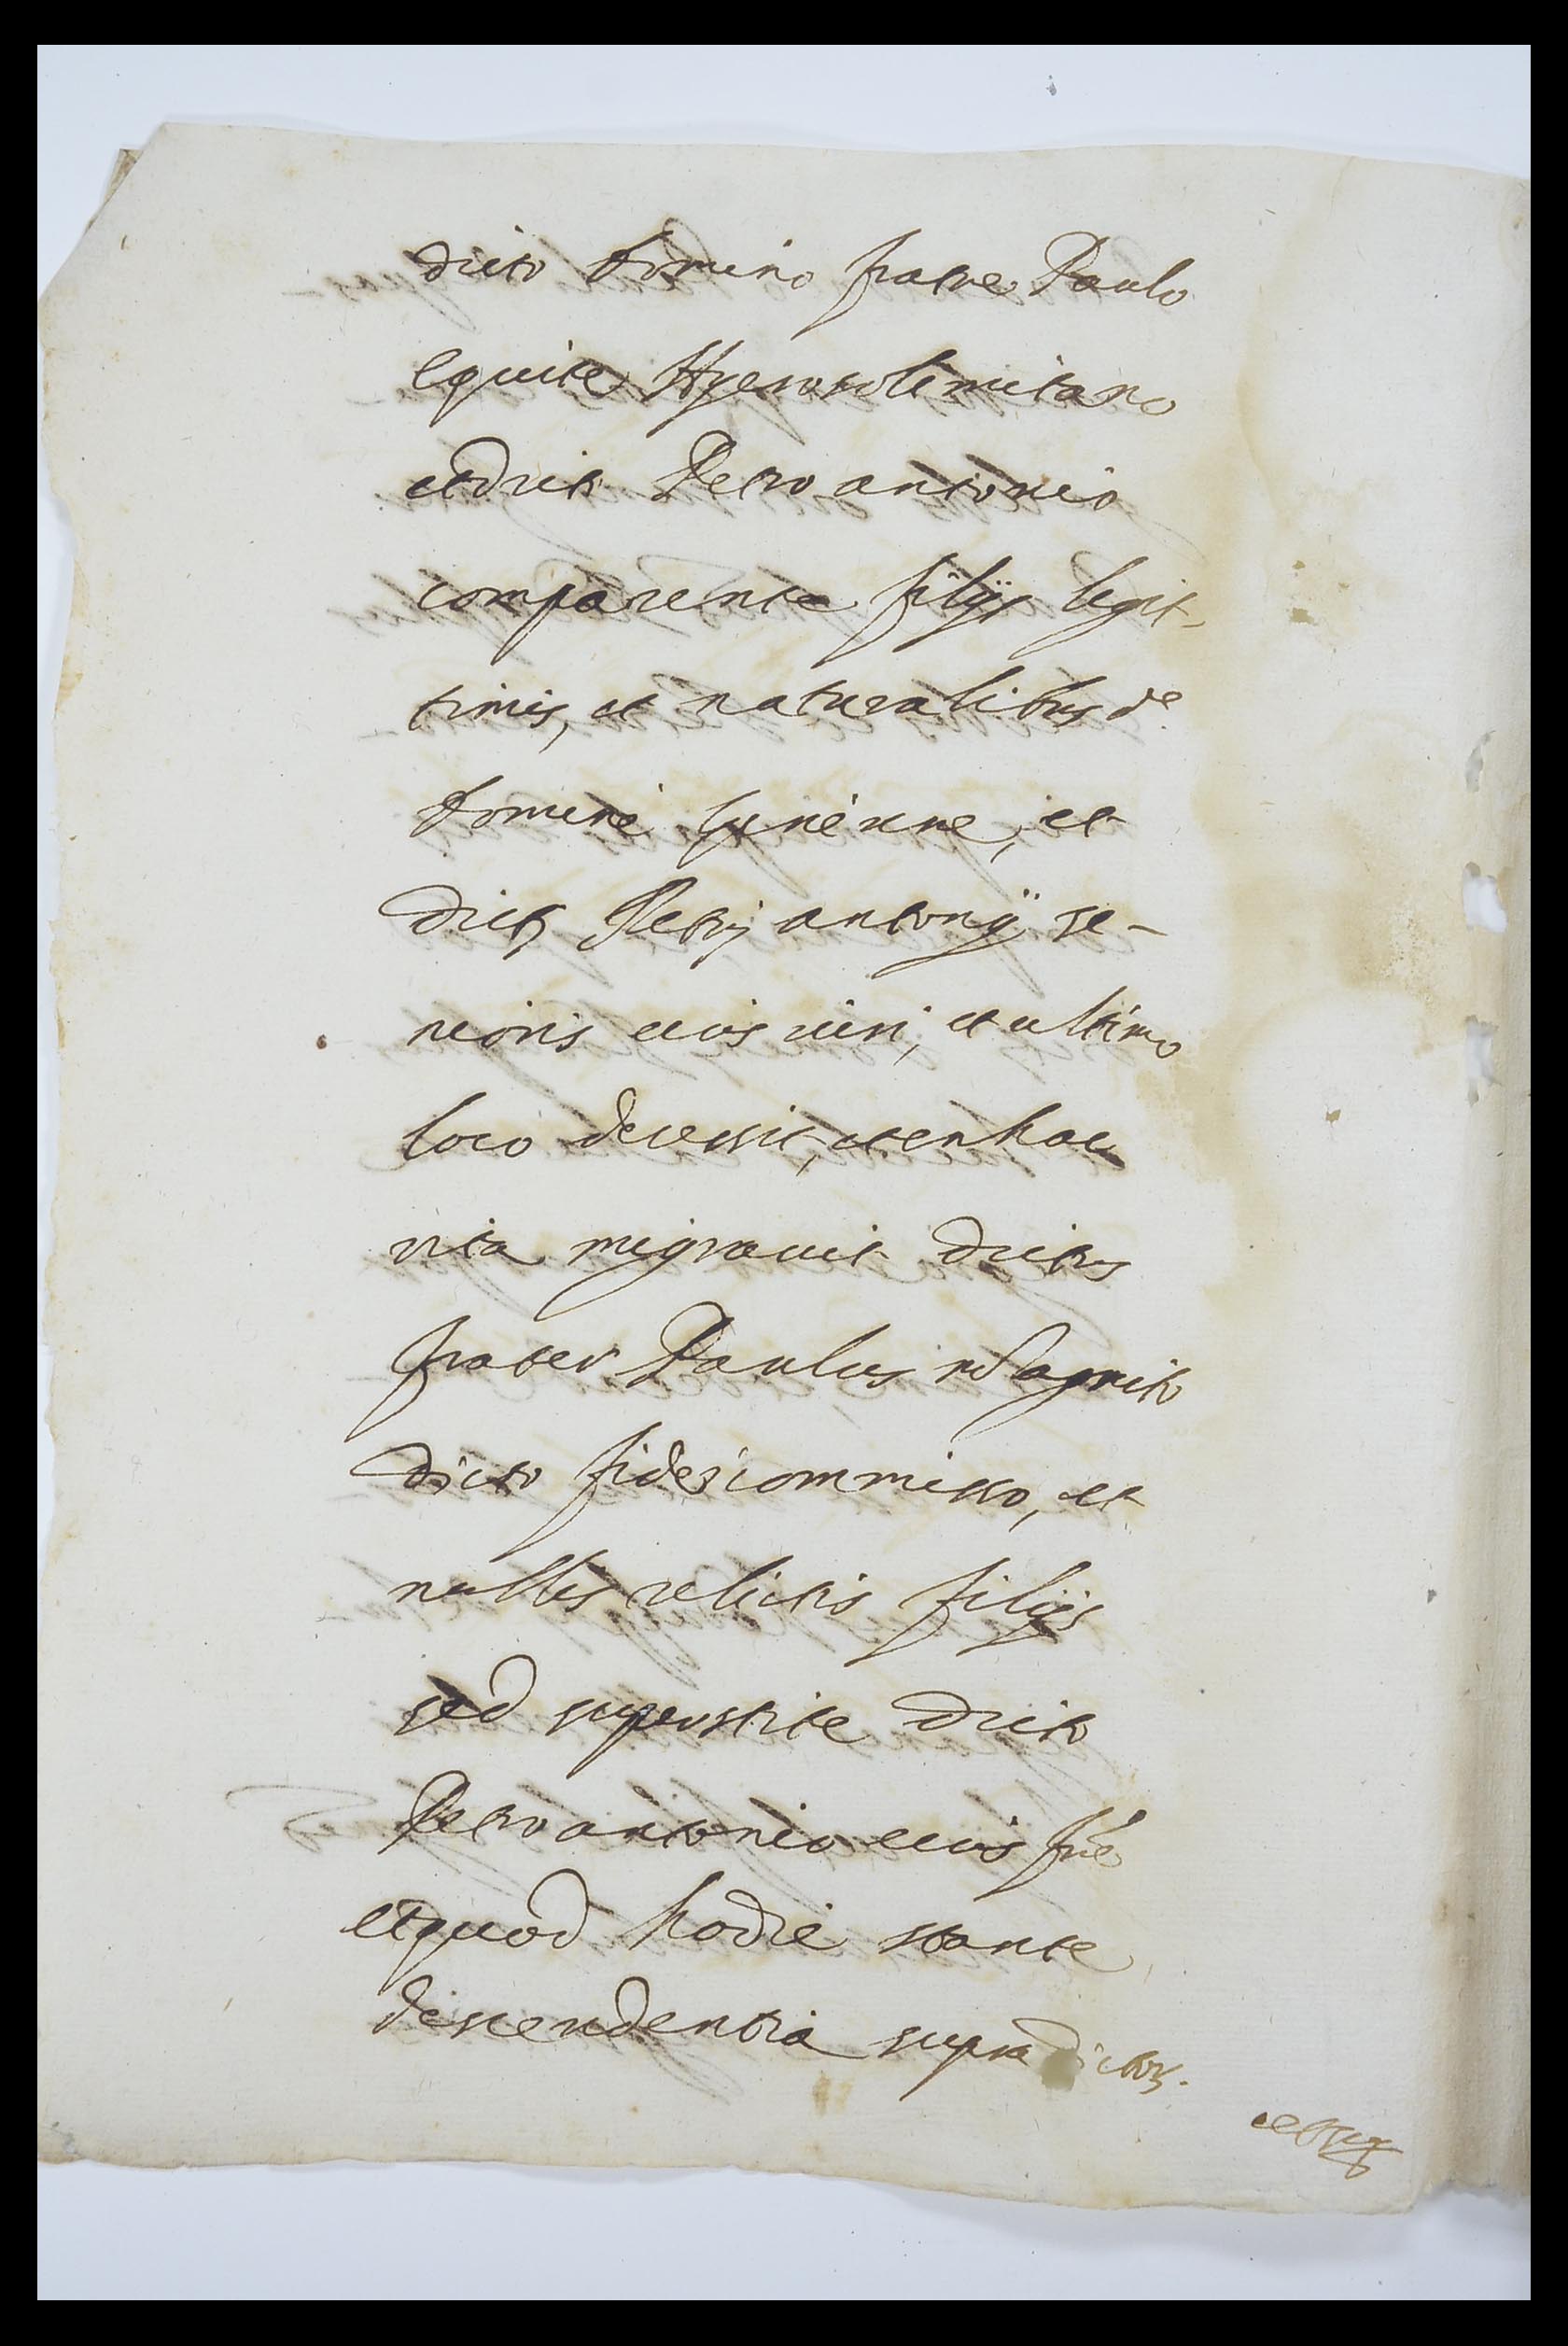 dicto Domino fratre Paulo
equite Hyerosolimitano
et dicto Petro antonio
comparente filijs legit-
timis, et naturalibus de
Domine et
dicti Petri antonij se-
nioris eius viri, et ultimo
loco decessit, et ex hac
vita migravit dictus
frater Paulus agnito
dicto fideicommisso, et
nullis relictis filijs
sed superstite dicto
Petro antonio eius fre
et quod hodie stante
descendentia supradictor.